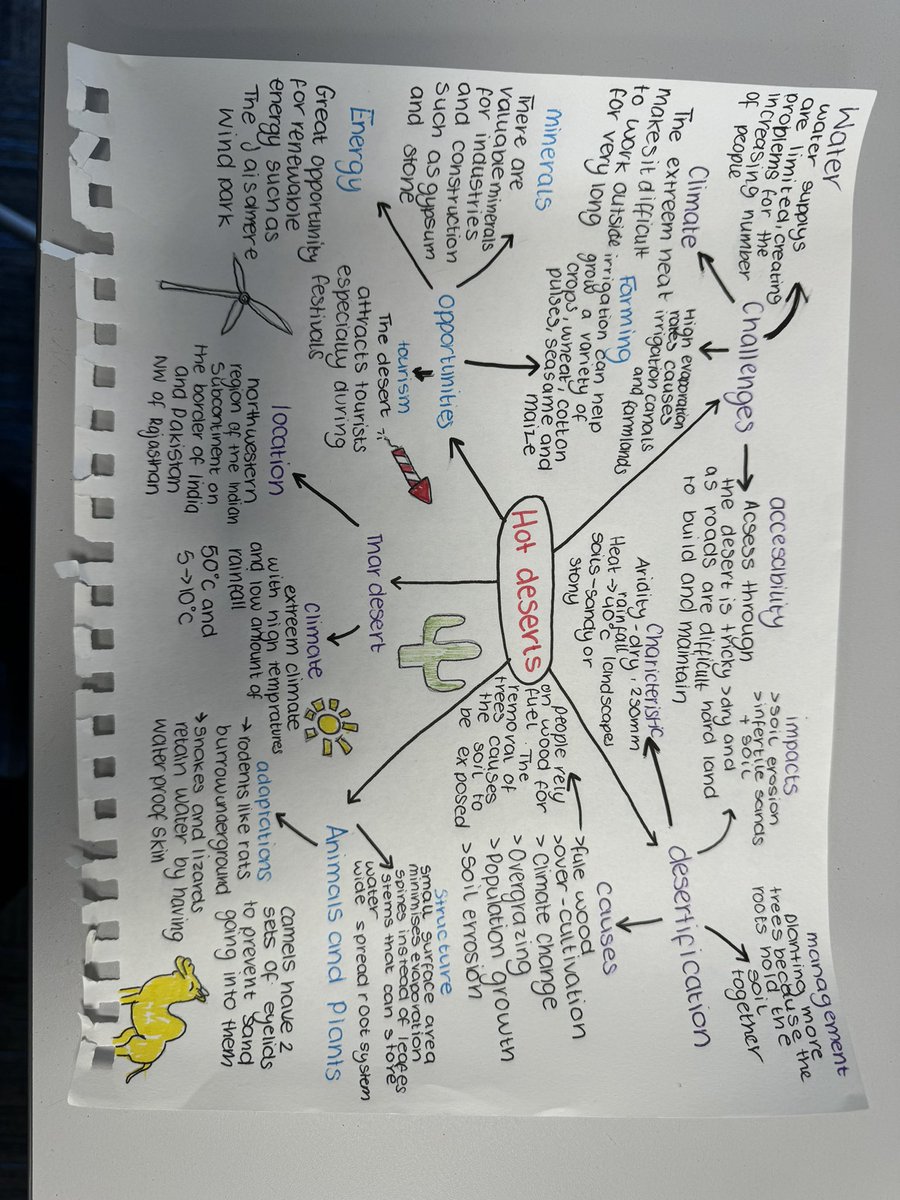 Hot deserts
Water
water supplys
are limited, creating
problems for the
increasing number
of people
Challenges
Climate
The extreem heat
makes it dificult
to work outside
for very long
High evaporation
rates causes
irrigation canals
and farmlands
accesability
Acsess through
the desert is tricky > dry and
as roads are difficult hard land
to build and maintain
Opportunities
minerals
There are
valuabe minerals
for industries
and construction
such as gypsum
and stone
Farming
irrigation can help
grow a variety of
crops, wheat, cotton
pulses, seasame, and
maize
Energy
Great opportunity
for renewable
energy such as
The Jaisalmere
Wind park
tourism
The desert
attracts tourists
especially during
festivals
Thar desert
location
northwestern
region of the Indian
Subcontinent on
the border of India
and Pakistan
NW of Rajasthan
climate
extreem climate
with high tempratures
and low amount of
rainfall
50°c and
5→10°c
desertification
Charicteristic
Aridity - dry, 250mm
rainfall
Heat → 40°c landscapes
soils - sandy or
stony
impacts
> soil erosion
> infertile sands
+ soil
management
planting more
trees because the
roots hold the
soil
together
causes
> fule wood
> over-cultivation
> Climate change
> Overgrazing
> Population growth
> Soil errosion
people rely
on wood for
fuel. The
removal of
trees causes
the soil to
be exposed
Animals and Plants
structure
small surface area
minimises evaporation
spines instead of leafes
stems that can store
water
wide spread root system
adaptations
→ rodents like rats
burrow underground
→ snakes and lizards
retain water by having
waterproof skin
camels have 2
sets of eyelids
to prevent sand
going into them